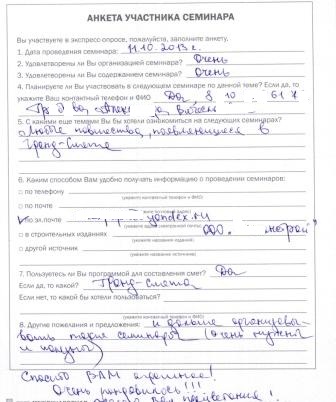 АНКЕТА УЧАСТНИКА СЕМИНАРА
Вы участвуете в экспресс-опросе, пожалуйста, заполните анкету.
1. Дата проведения семинара: 11.10.2013 г.
2. Удовлетворены ли Вы организацией семинара? Очень
3. Удовлетворены ли Вы содержанием семинара? очень
4. Планируете ли Вы участвовать в следующем семинаре по данной теме? Если да, то
укажите Ваш контактный телефон и ФИО Да, 8 10 61
5. С какими еще темами Вы бы хотели ознакомиться на следующих семинарах?
Любые новшества, появляющиеся в
Гранд-Смета
6. Каким способом Вам удобно получать информацию о проведении семинаров:
по телефону
(укажите контактный телефон и ФИО)
по почте
по эл.почте yandex.ru
в строительных изданиях ООО
(укажите название издания)
другой источник
(укажите название источника)
7. Пользуетесь ли Вы программой для составления смет? Да
Если да, то какой? Гранд-смета
Если нет, то какой бы хотели пользоваться?
8. Другие пожелания и предложения: и дальше организовы-
вать такие семинары (очень нужны
и полезны)
Спасибо ВАМ огромное!
Очень понравилось!!!
процветания!